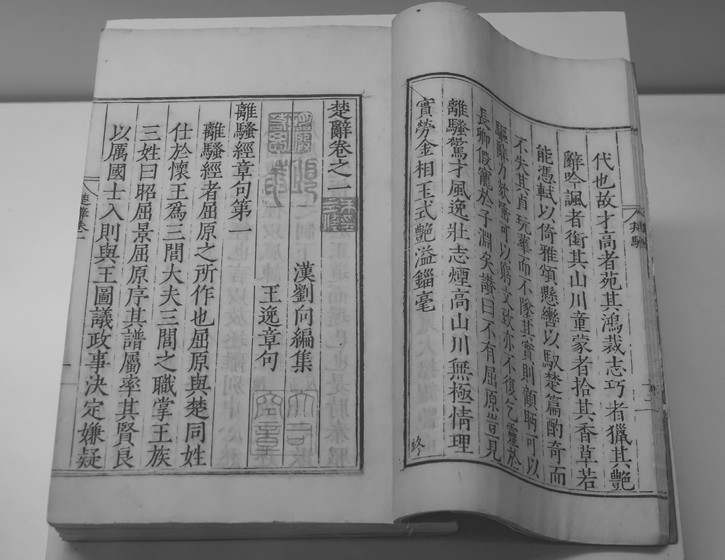 代也故才高者苑其鴻裁志巧者獵其艷
辭吟諷者銜其山川童蒙者拾其香草若
能憑軾以倚雅頌懸轡以馭楚篇酌奇而
不失其貞玩華而不墜其實則顧眄可以
驅辭力欬唾可以窮文致亦不復乞靈於
長卿假寵於子淵矣讚曰不有屈原豈見
離騷驚才風逸壯志煙高山川無極情理
實勞金相玉式艷溢錙毫
終
楚辭卷之一
漢劉向編集
王逸章句
離騷經章句第一
離騷經者屈原之所作也屈原與楚同姓
仕於懷王爲三閭大夫三閭之職掌王族
三姓曰昭屈景屈原序其譜屬率其賢良
以厲國士入則與王圖議政事決定嫌疑
楚辭卷一